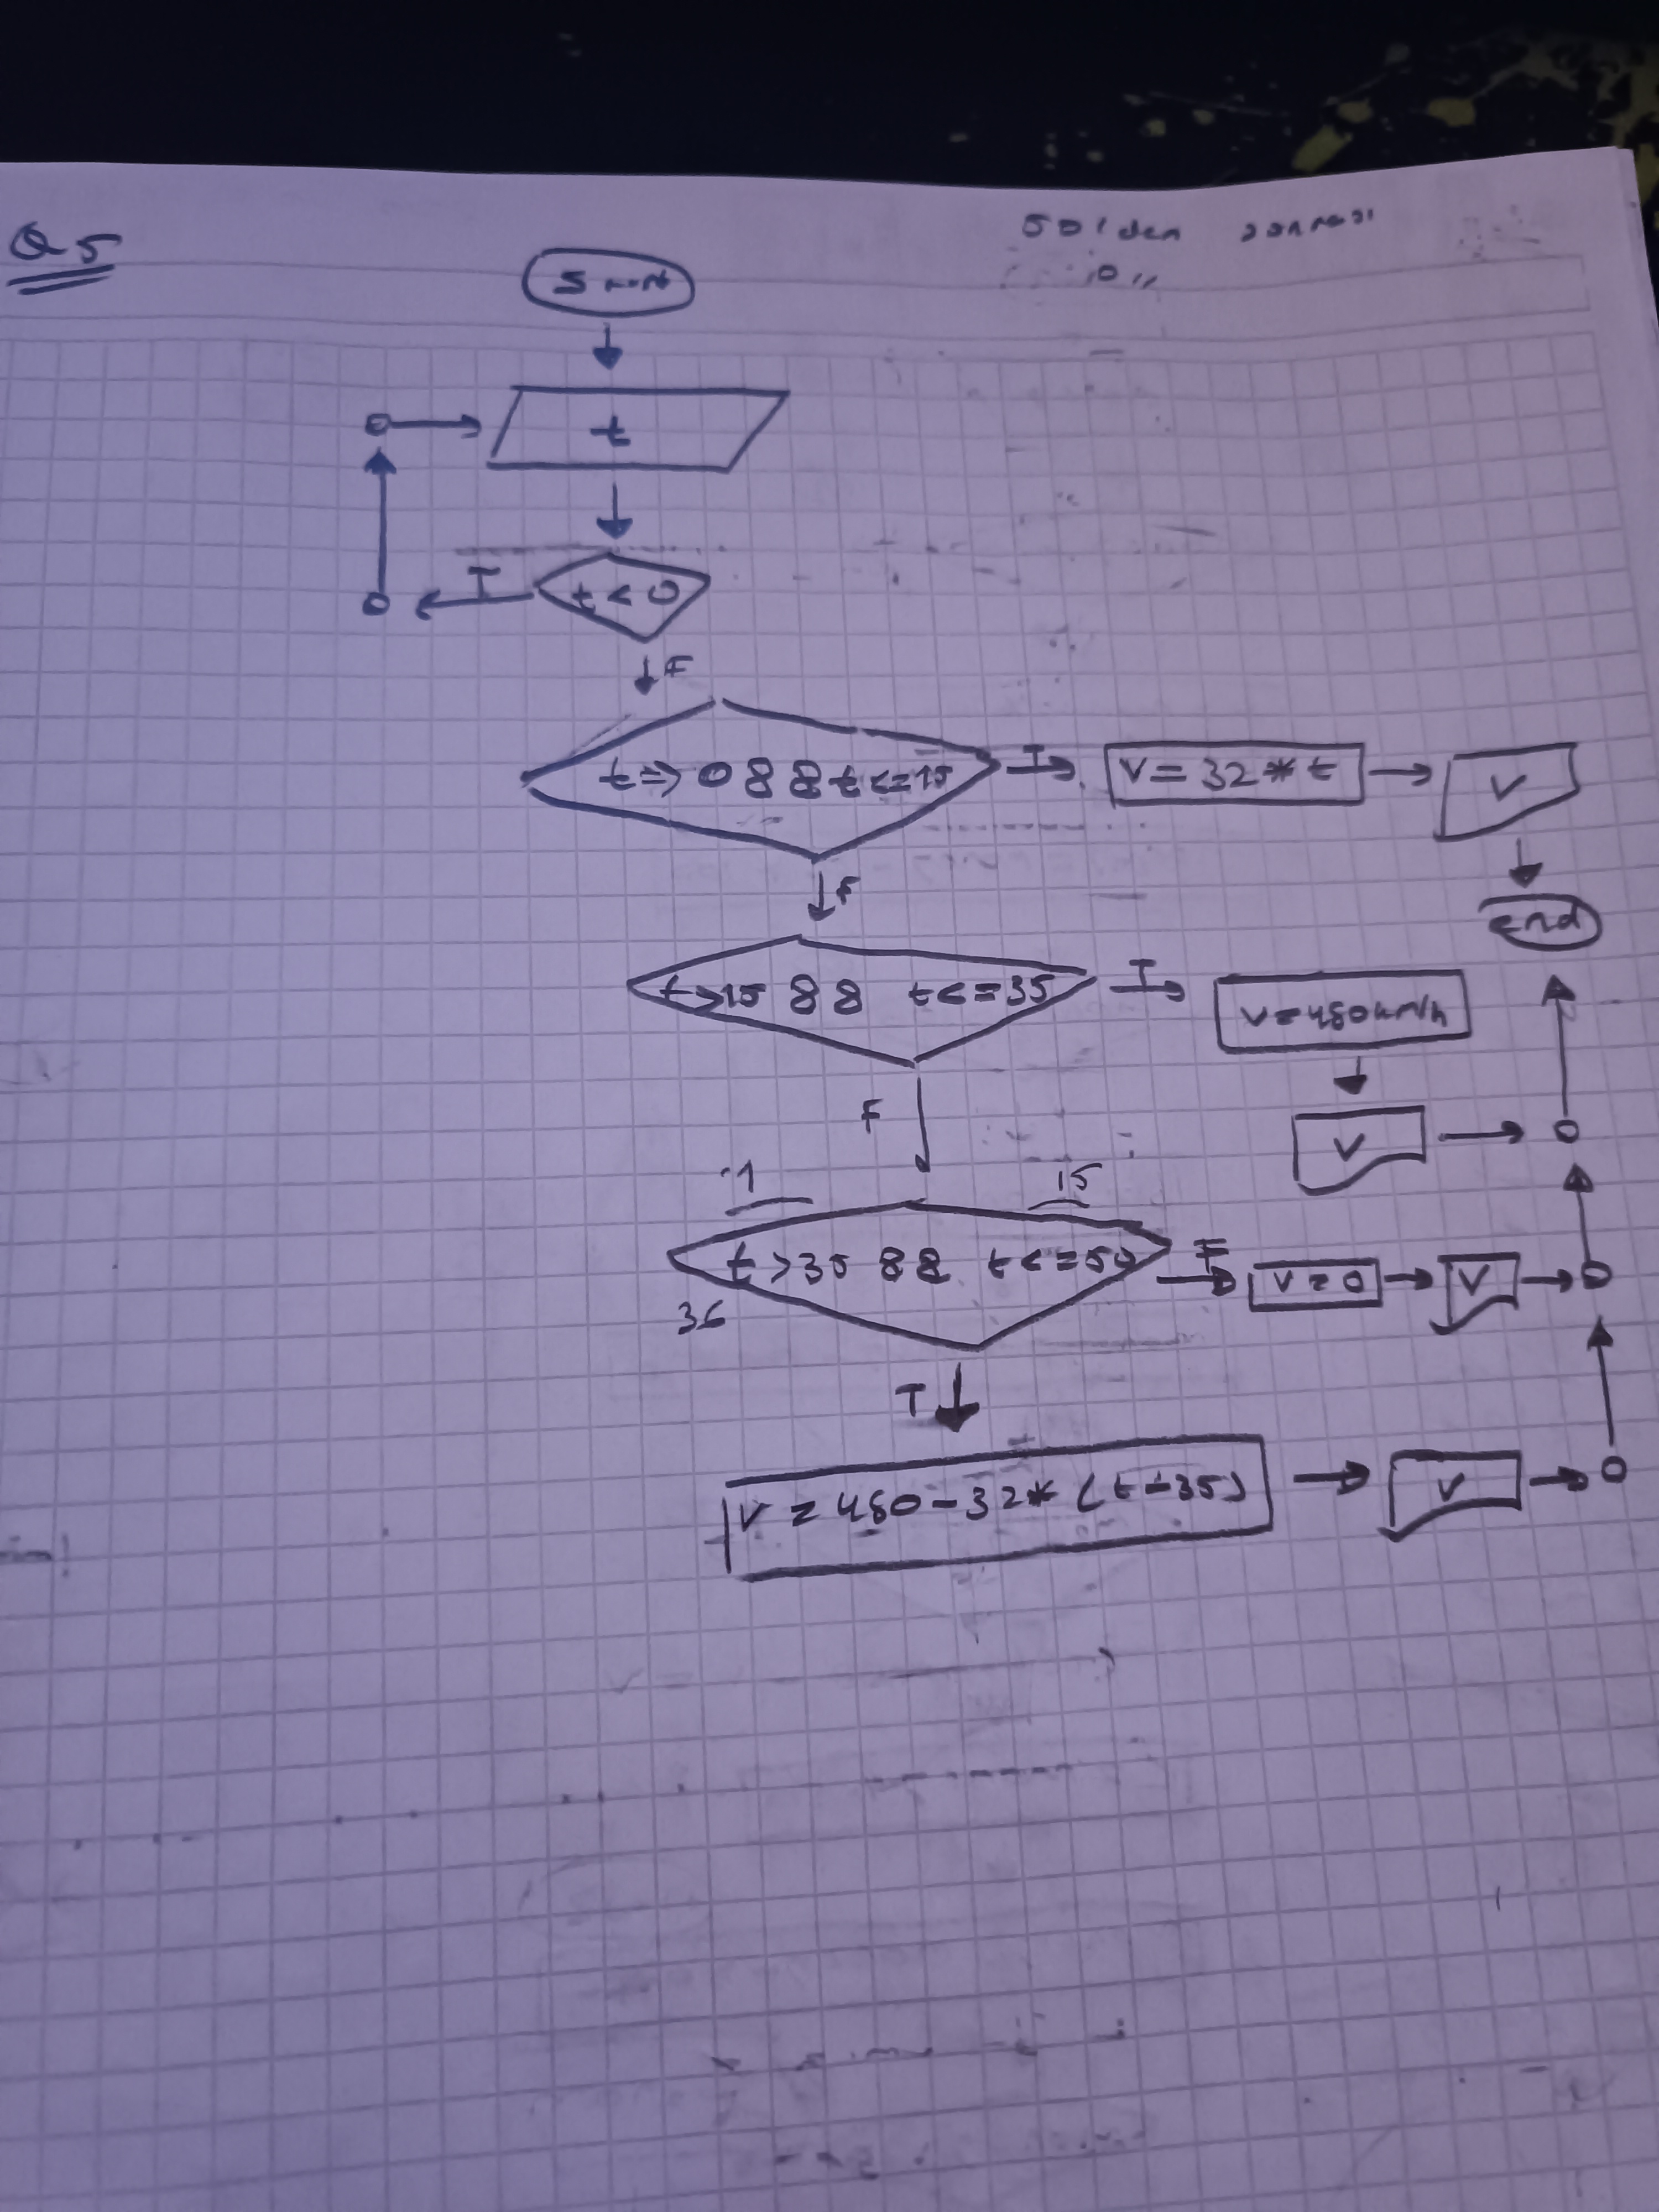 Q5
50'den sonrası
0,,
Start
t
t < 0
T
F
t => 0 && t <= 15
T
V = 32 * t
V
F
end
t > 15 && t <= 35
T
V = 480 km/h
F
V
-1
15
t > 35 && t <= 50
F
V = 0
V
36
T
V = 480 - 32 * (t - 35)
V